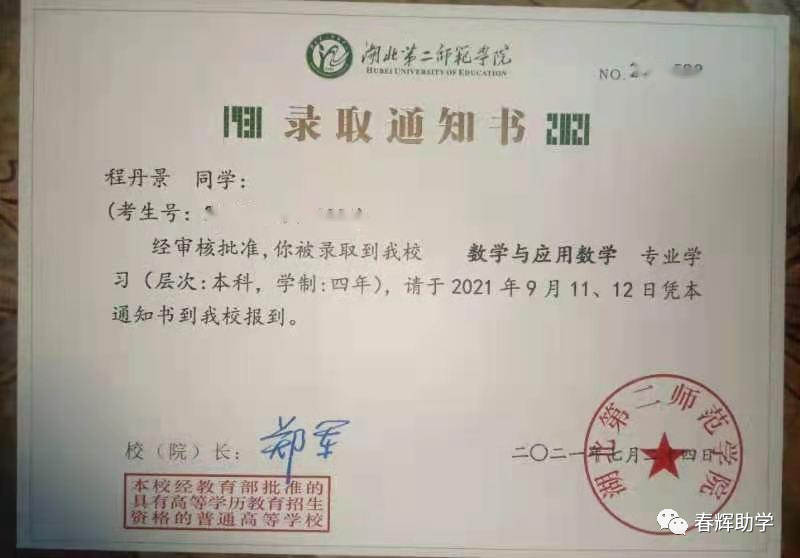 湖北第二师范学院
HUBEI UNIVERSITY OF EDUCATION
NO.
1931 录取通知书 2021
程丹景 同学:
(考生号:
经审核批准,你被录取到我校 数学与应用数学 专业学
习(层次:本科,学制:四年),请于2021年9月11、12日凭本
通知书到我校报到。
校(院)长: 郑军
二〇二一年七月二十四日
湖北第二师范学院
本校经教育部批准的
具有高等学历教育招生
资格的普通高等学校
春辉助学